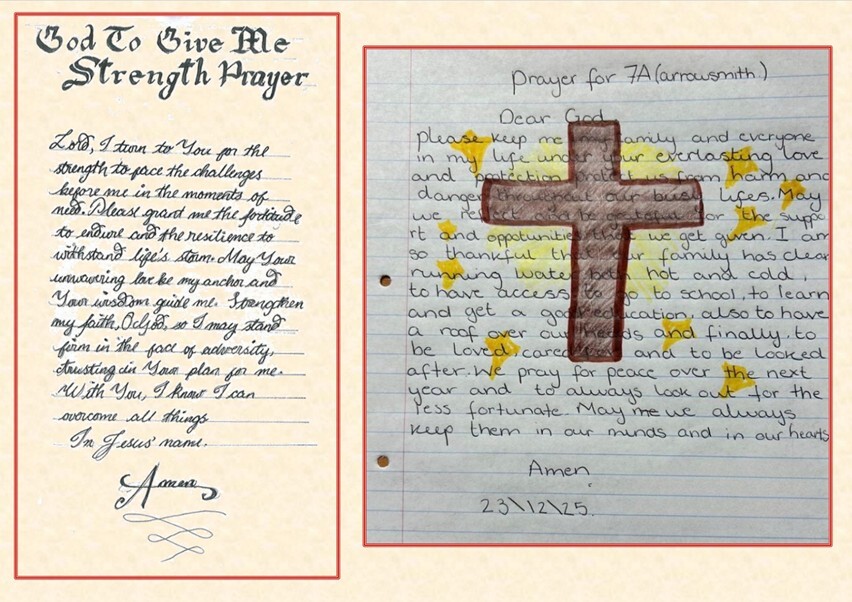 God To Give Me
Strength Prayer
Lord, I turn to You for the
strength to face the challenges
before me in the moments of
need. Please grant me the fortitude
to endure and the resilience to
withstand life's storm. May Your
unwavering love be my anchor and
Your wisdom guide me. Strengthen
my faith, O God, so I may stand
firm in the face of adversity,
trusting in Your plan for me.
With You, I know I can
overcome all things
In Jesus' name.
Amen
Prayer for 7A (arrowsmith)
Dear God
please keep me my family and everyone
in my life under your everlasting love
and protection protect us from harm and
danger throughout our busy lifes. May
we reflect and be grateful for the suppo
rt and oppotunities that we get given. I am
so thankful that our family has clear
running water both hot and cold,
to have access to go to school, to learn
and get a good education, also to have
a roof over our heads and finally, to
be loved, cared and to be looked
after. We pray for peace over the next
year and to always look out for the
less fortunate. May me we always
keep them in our minds and in our hearts
Amen
23\12\25.